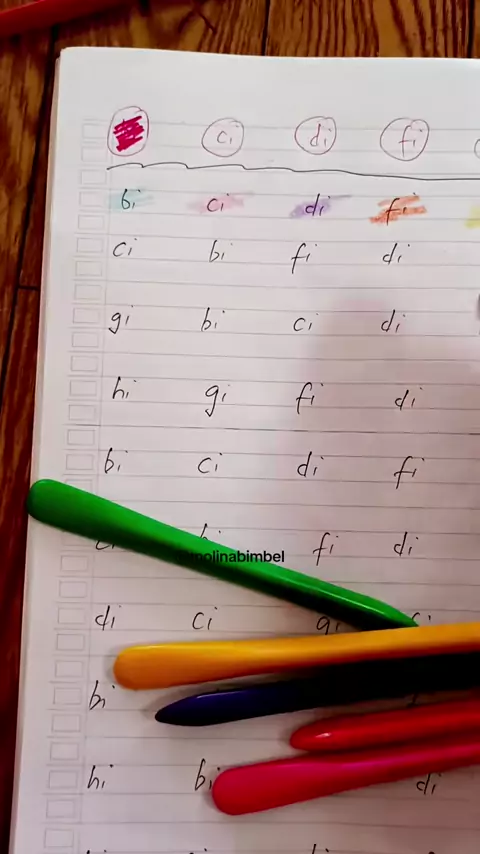 ci di fi
bi ci di fi
ci bi fi di
gi bi ci di
hi gi fi di
bi ci di fi
fi di
molinabimbel
di ci
bi
hi bi di